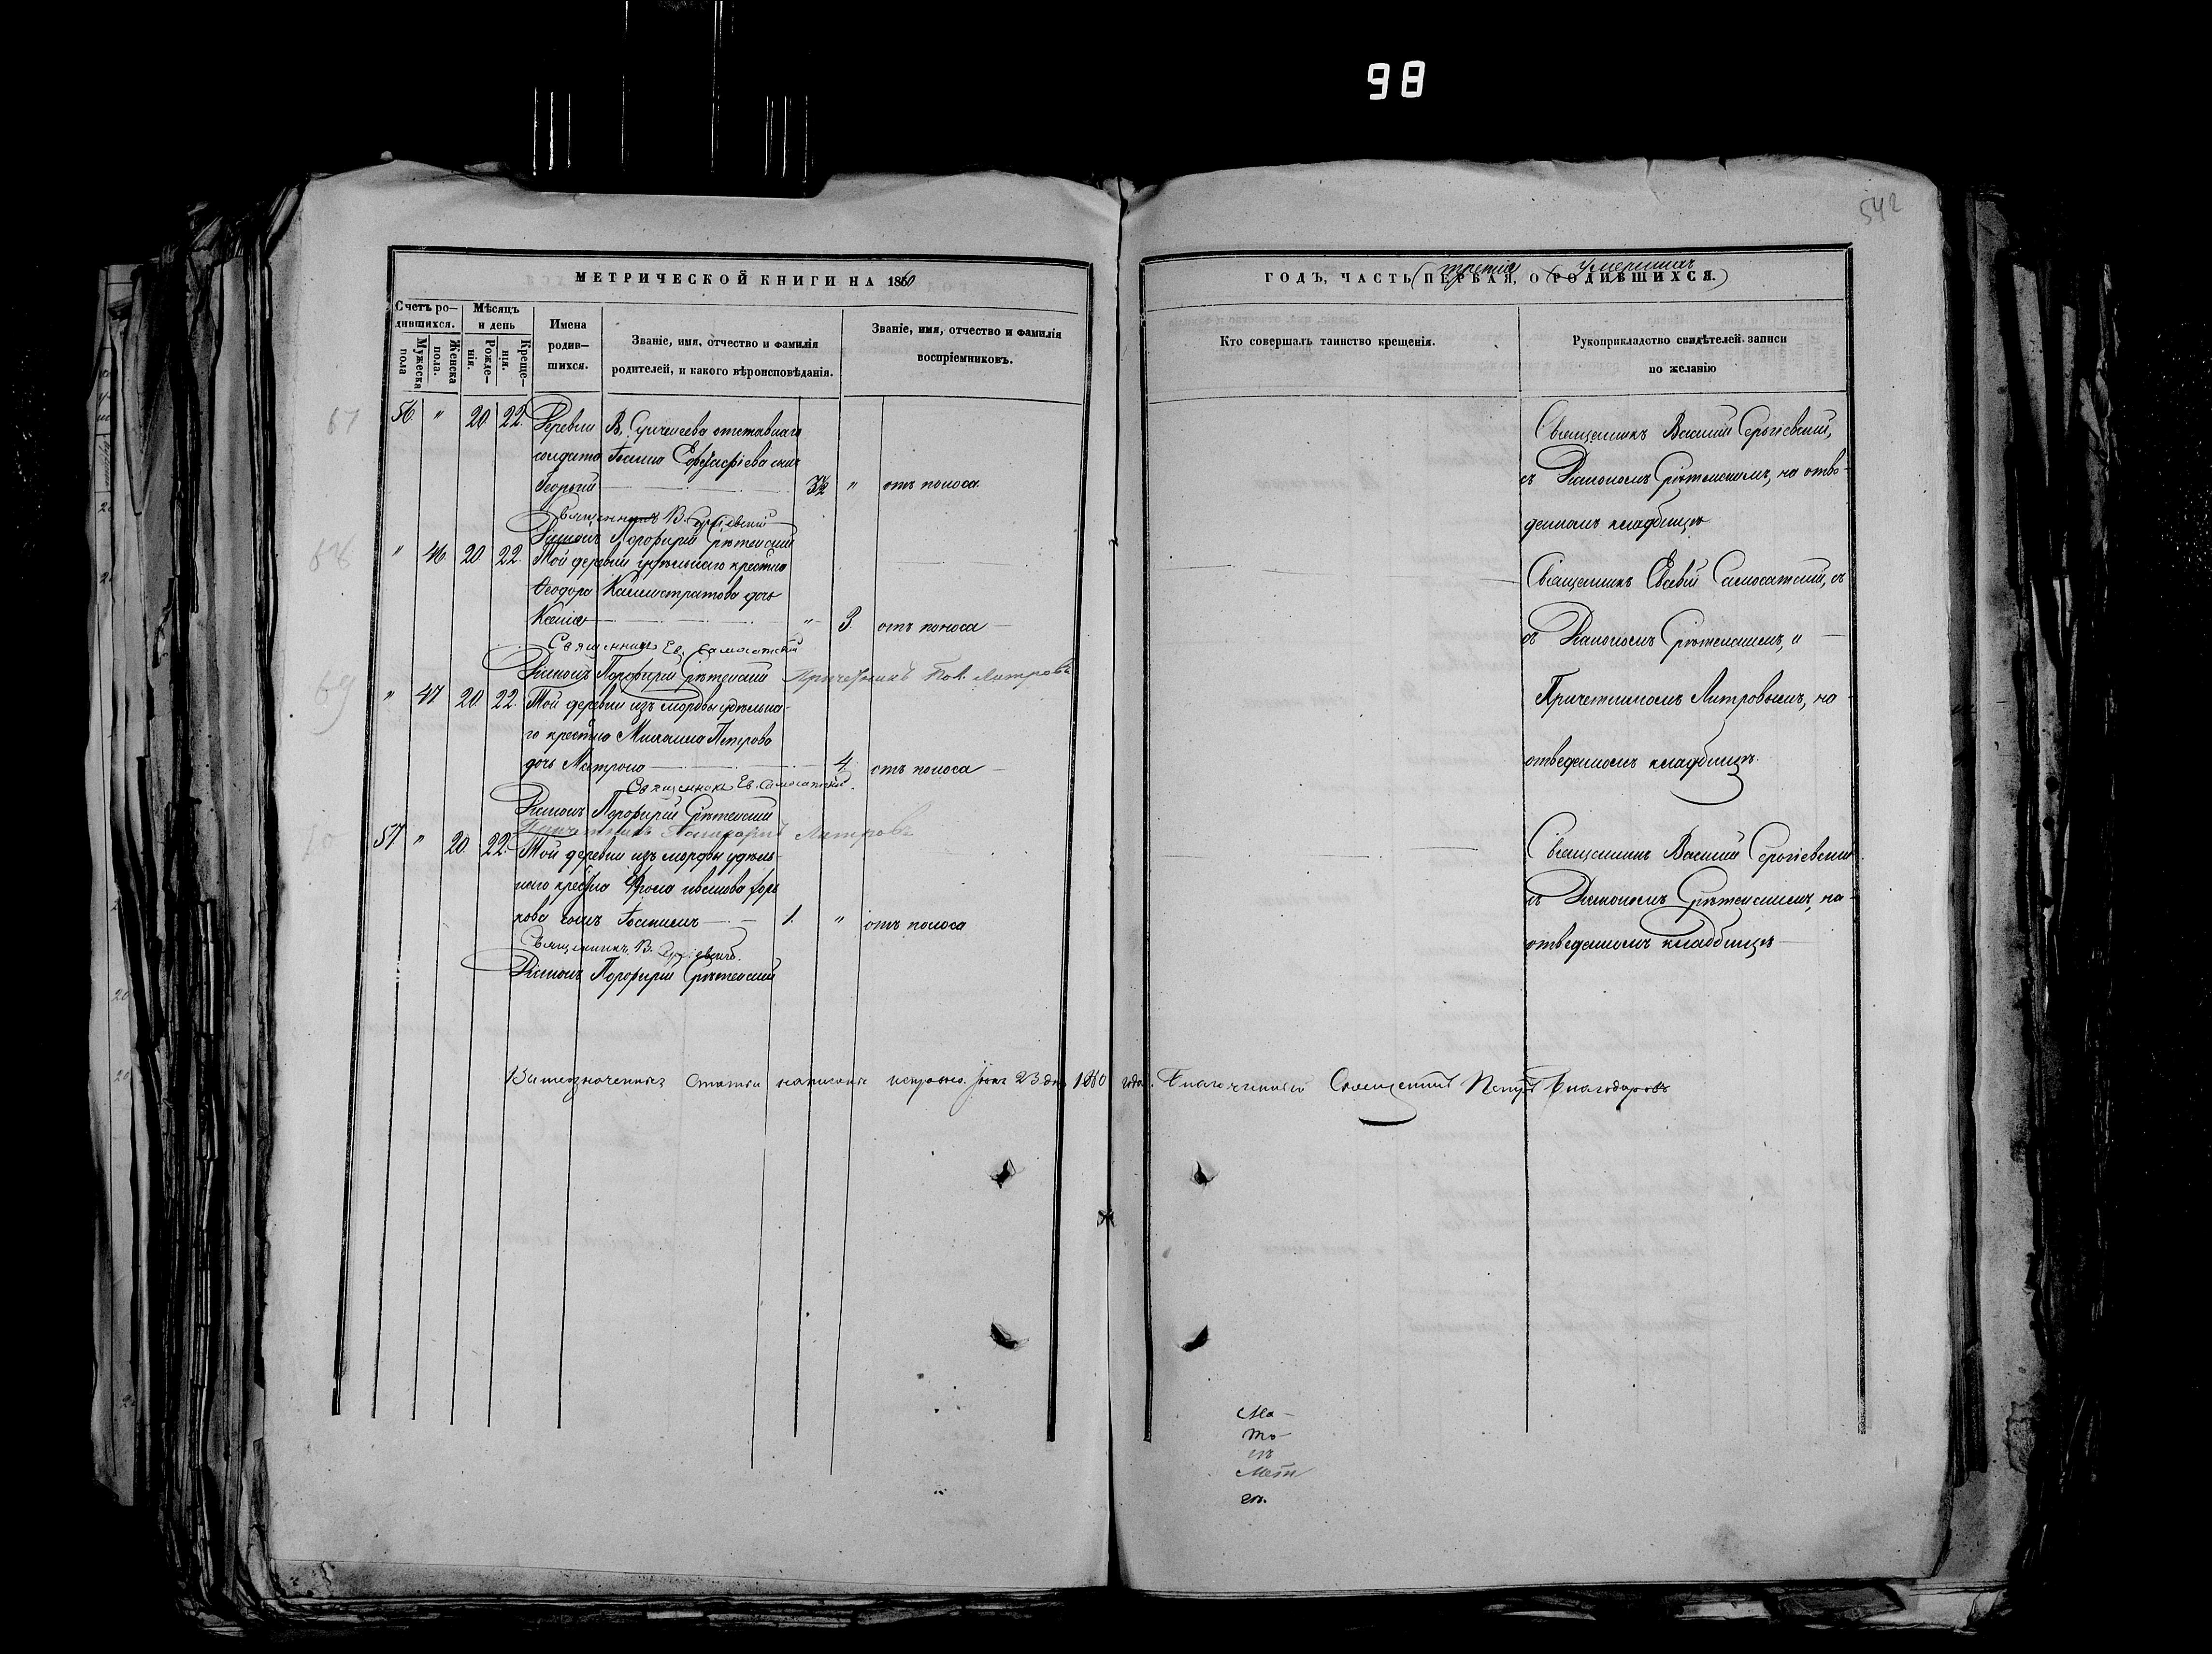 98
542
МЕТРИЧЕСКОЙ КНИГИ НА 1860
ГОДЪ, ЧАСТЬ (ПЕРВАЯ, О РОДИВШИХСЯ.)
третія умершихъ
Счетъ ро-
дившихся.
Мужеска
пола
Женска
пола.
Мѣсяцъ
и день
Рожде-
нія.
Креще-
нія.
Имена
родив-
шихся.
Званіе, имя, отчество и фамилія
родителей, и какого вѣроисповѣданія.
Званіе, имя, отчество и фамилія
воспріемниковъ.
Кто совершалъ таинство крещенія.
Рукоприкладство свидѣтелей записи
по желанію
67 56 " 20. 22. Деревни В. отставнаго
солдата Іоанна сынъ
Георгій 3½ " отъ поноса.
Священникъ В. Сергіевскій
Діаконъ Порфирій Срѣтенскій
Священникъ Василій Сергіевскій,
съ Діакономъ Срѣтенскимъ, на отве-
денномъ кладбищѣ
68 " 46 20 22. Той деревни удѣльнаго крестьян
Ѳеодора Каллистратова дочь
Ксенія " 3. отъ поноса
Священникъ Ев. Самосатскій
Діаконъ Порфирій Срѣтенскій Причетникъ Пол.
Священникъ Евсевій Самосатскій, съ
съ Діакономъ Срѣтенскимъ, и
Причетникомъ на
отведенномъ кладбищѣ.
69 " 47 20. 22. Той деревни изъ мордвы удѣльна-
го крестьян Михаила Петрова
дочь Матрона 4. отъ поноса
Священникъ Ев. Самосатскій.
Діаконъ Порфирій Срѣтенскій
Причетникъ
57 " 20. 22. Той деревни изъ мордвы удѣль-
наго крестьян
сынъ 1. " отъ поноса
Священникъ В. Сергіевскій.
Діаконъ Порфирій Срѣтенскій
Священникъ Василій Сергіевскій
съ Діакономъ Срѣтенскимъ, на-
отведенномъ кладбищѣ
Вышеозначенныя статьи написаны исправно. 23 дня 1860 года. Благочинный Священникъ Петръ Благодаровъ